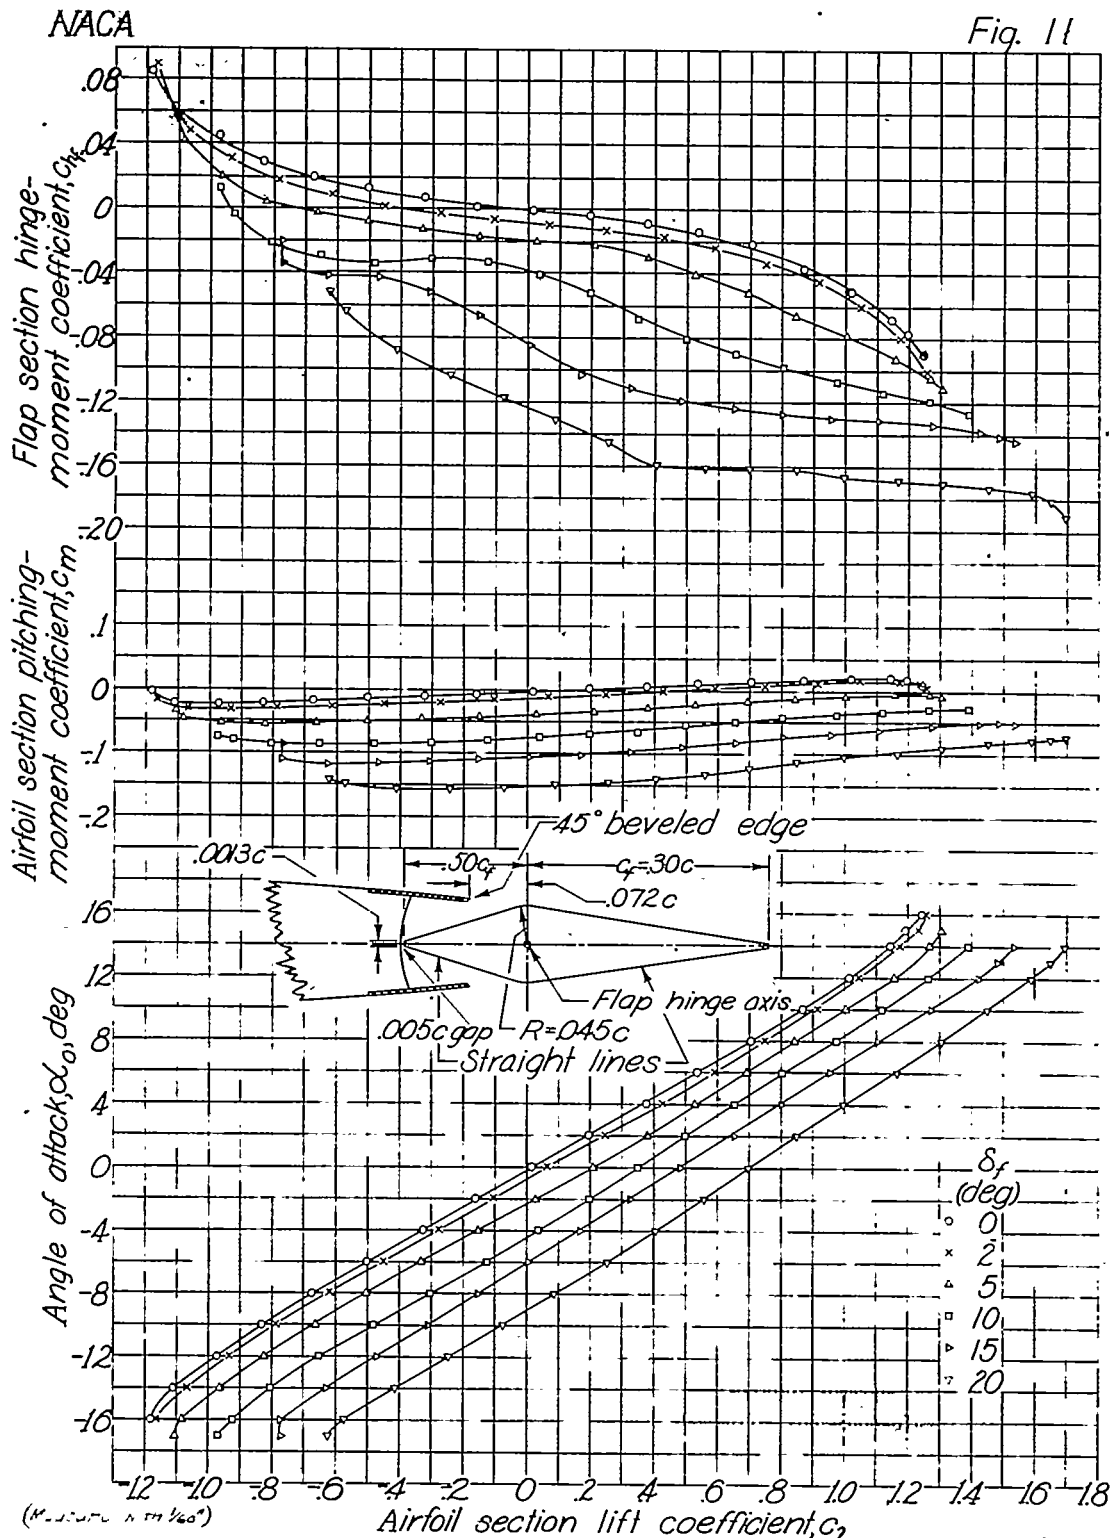 NACA
Fig. 11
Flap section hinge-
moment coefficient, c_hf
.08
.04
0
-.04
-.08
-.12
-.16
-.20
Airfoil section pitching-
moment coefficient, c_m
.1
0
-.1
-.2
45° beveled edge
.0013c
.50c_f
c_f=.30c
.072c
Flap hinge axis
.005c gap
R=.045c
Straight lines
Angle of attack, α_o, deg
16
12
8
4
0
-4
-8
-12
-16
δ_f
(deg)
○ 0
× 2
△ 5
□ 10
▷ 15
▽ 20
-1.2 -1.0 -.8 -.6 -.4 -.2 0 .2 .4 .6 .8 1.0 1.2 1.4 1.6 1.8
Airfoil section lift coefficient, c_l
1/60"